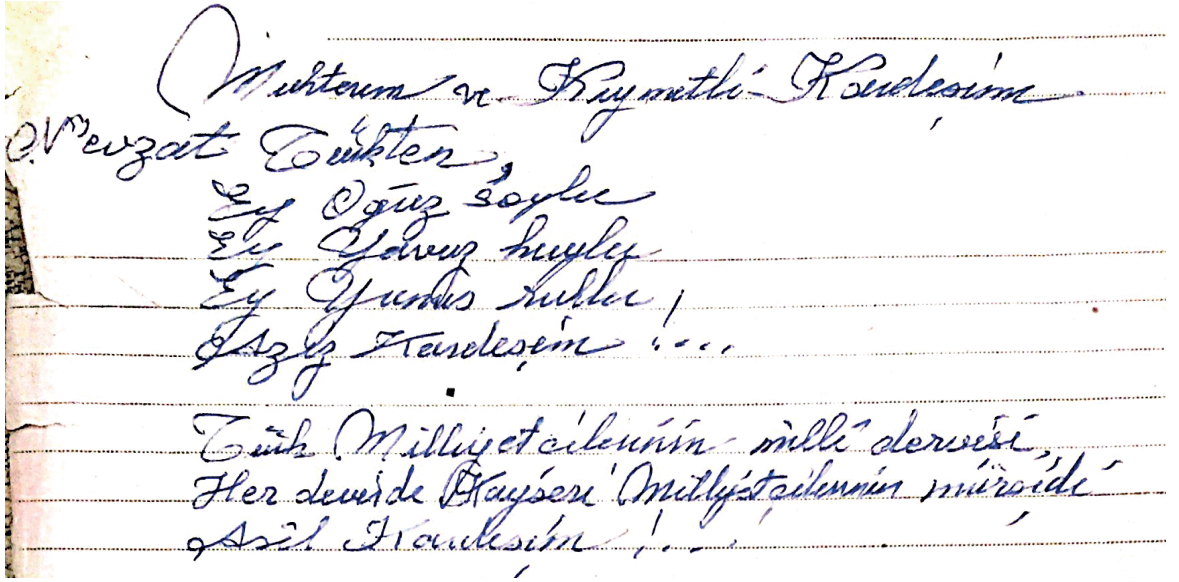 Muhterem ve Kıymetli Kardeşim
Nevzat Türkten,
Ey Oğuz soylu
Ey Yavuz huylu
Ey Yunus ruhlu,
Aziz Kardeşim!...
Türk Milliyetcilerinin milli dervişi,
Her devirde Kayseri Milliyetcilerinin mürşidi
Asil Kardeşim!...